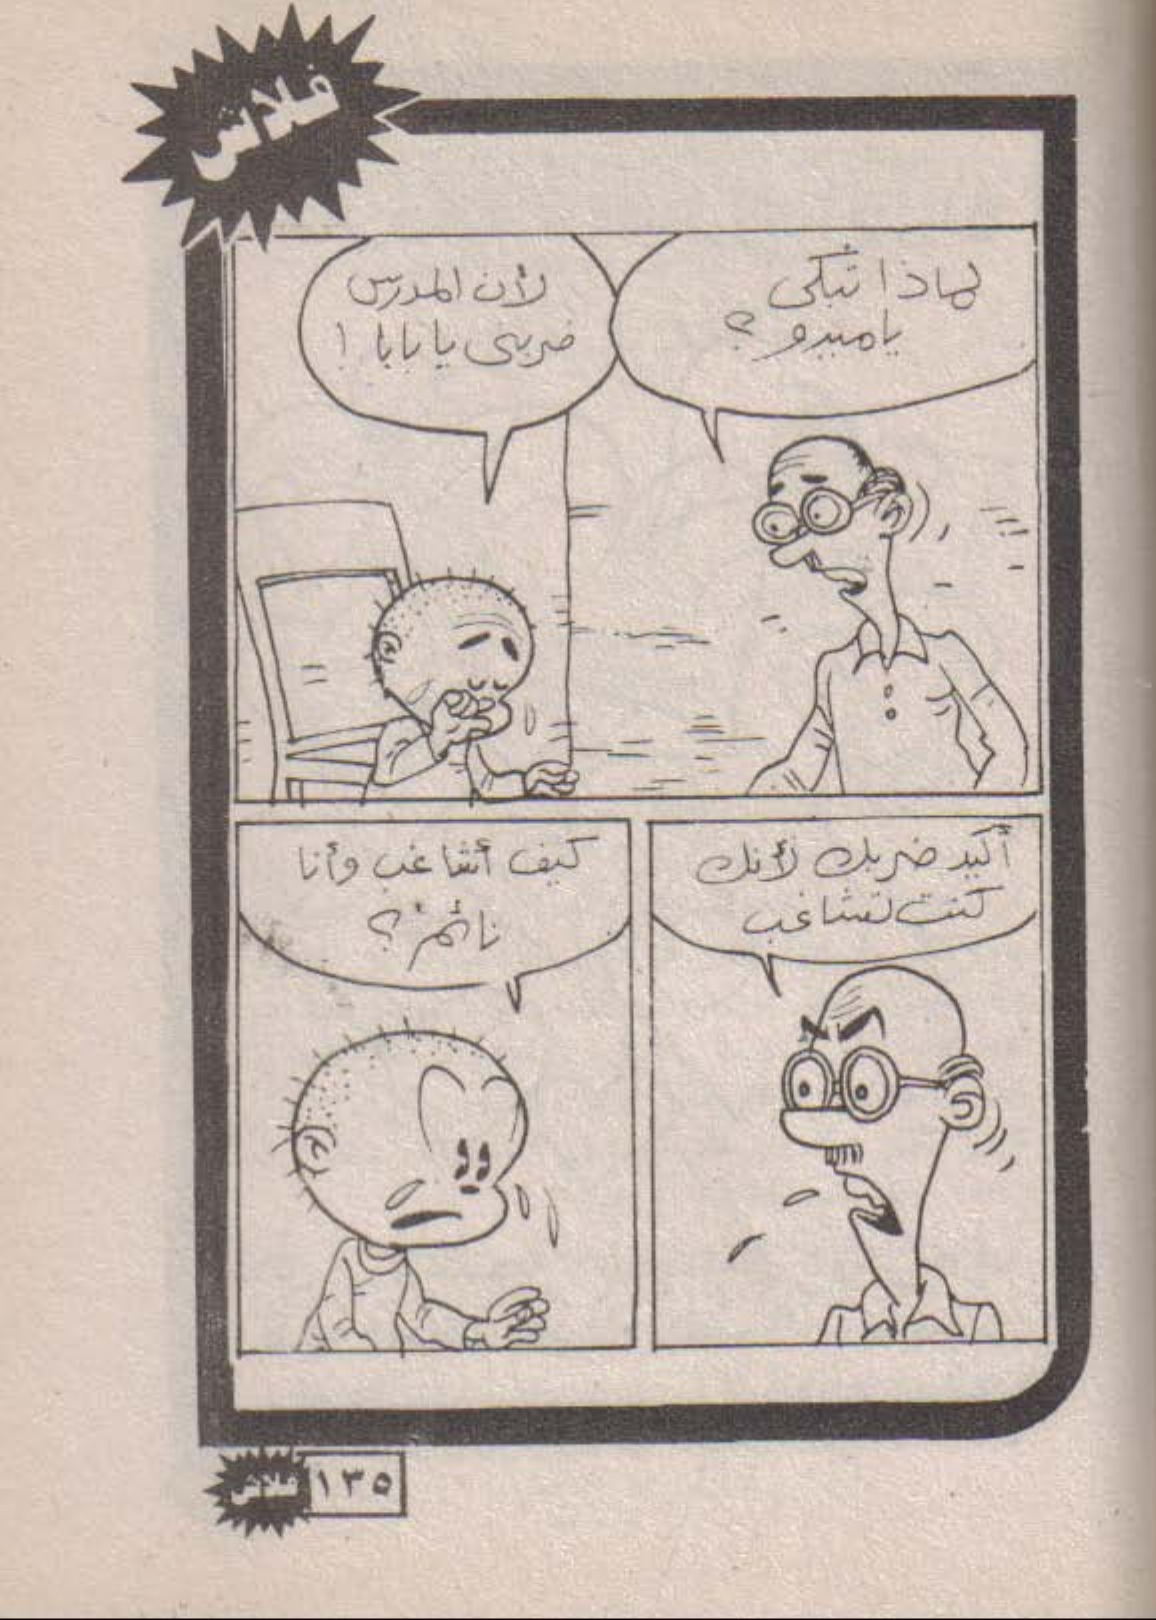 فلاش
لماذا تبكى
ياميدو؟
لأن المدرس
ضربنى يا بابا !
أكيد ضربك لأنك
كنت تشاغب
كيف أشاغب وأنا
نائم؟
١٣٥
فلاش